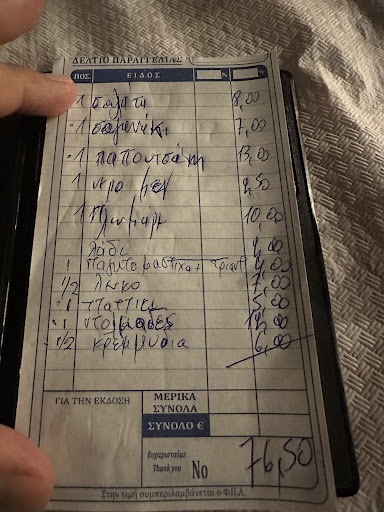 ΔΕΛΤΙΟ ΠΑΡΑΓΓΕΛΙΑΣ
ΠΟΣ. ΕΙΔΟΣ % %
1 σαλάτα 8,00
1 σαγανάκι 7,00
1 παπουτσάκι 13,00
1 νερό μεγ 2,50
1 Πλωμάρι 10,00
λάδι
1 Παγωτό μαστίχα 4,00
1/2 λευκό 7,00
1 5,00
1 ντολμάδες
1/2 κρεμμύδια 6,00
ΓΙΑ ΤΗΝ ΕΚΔΟΣΗ
ΜΕΡΙΚΑ ΣΥΝΟΛΑ
ΣΥΝΟΛΟ €
Ευχαριστούμε
Thank you No 76,50
Στην τιμή συμπεριλαμβάνεται ο Φ.Π.Α.